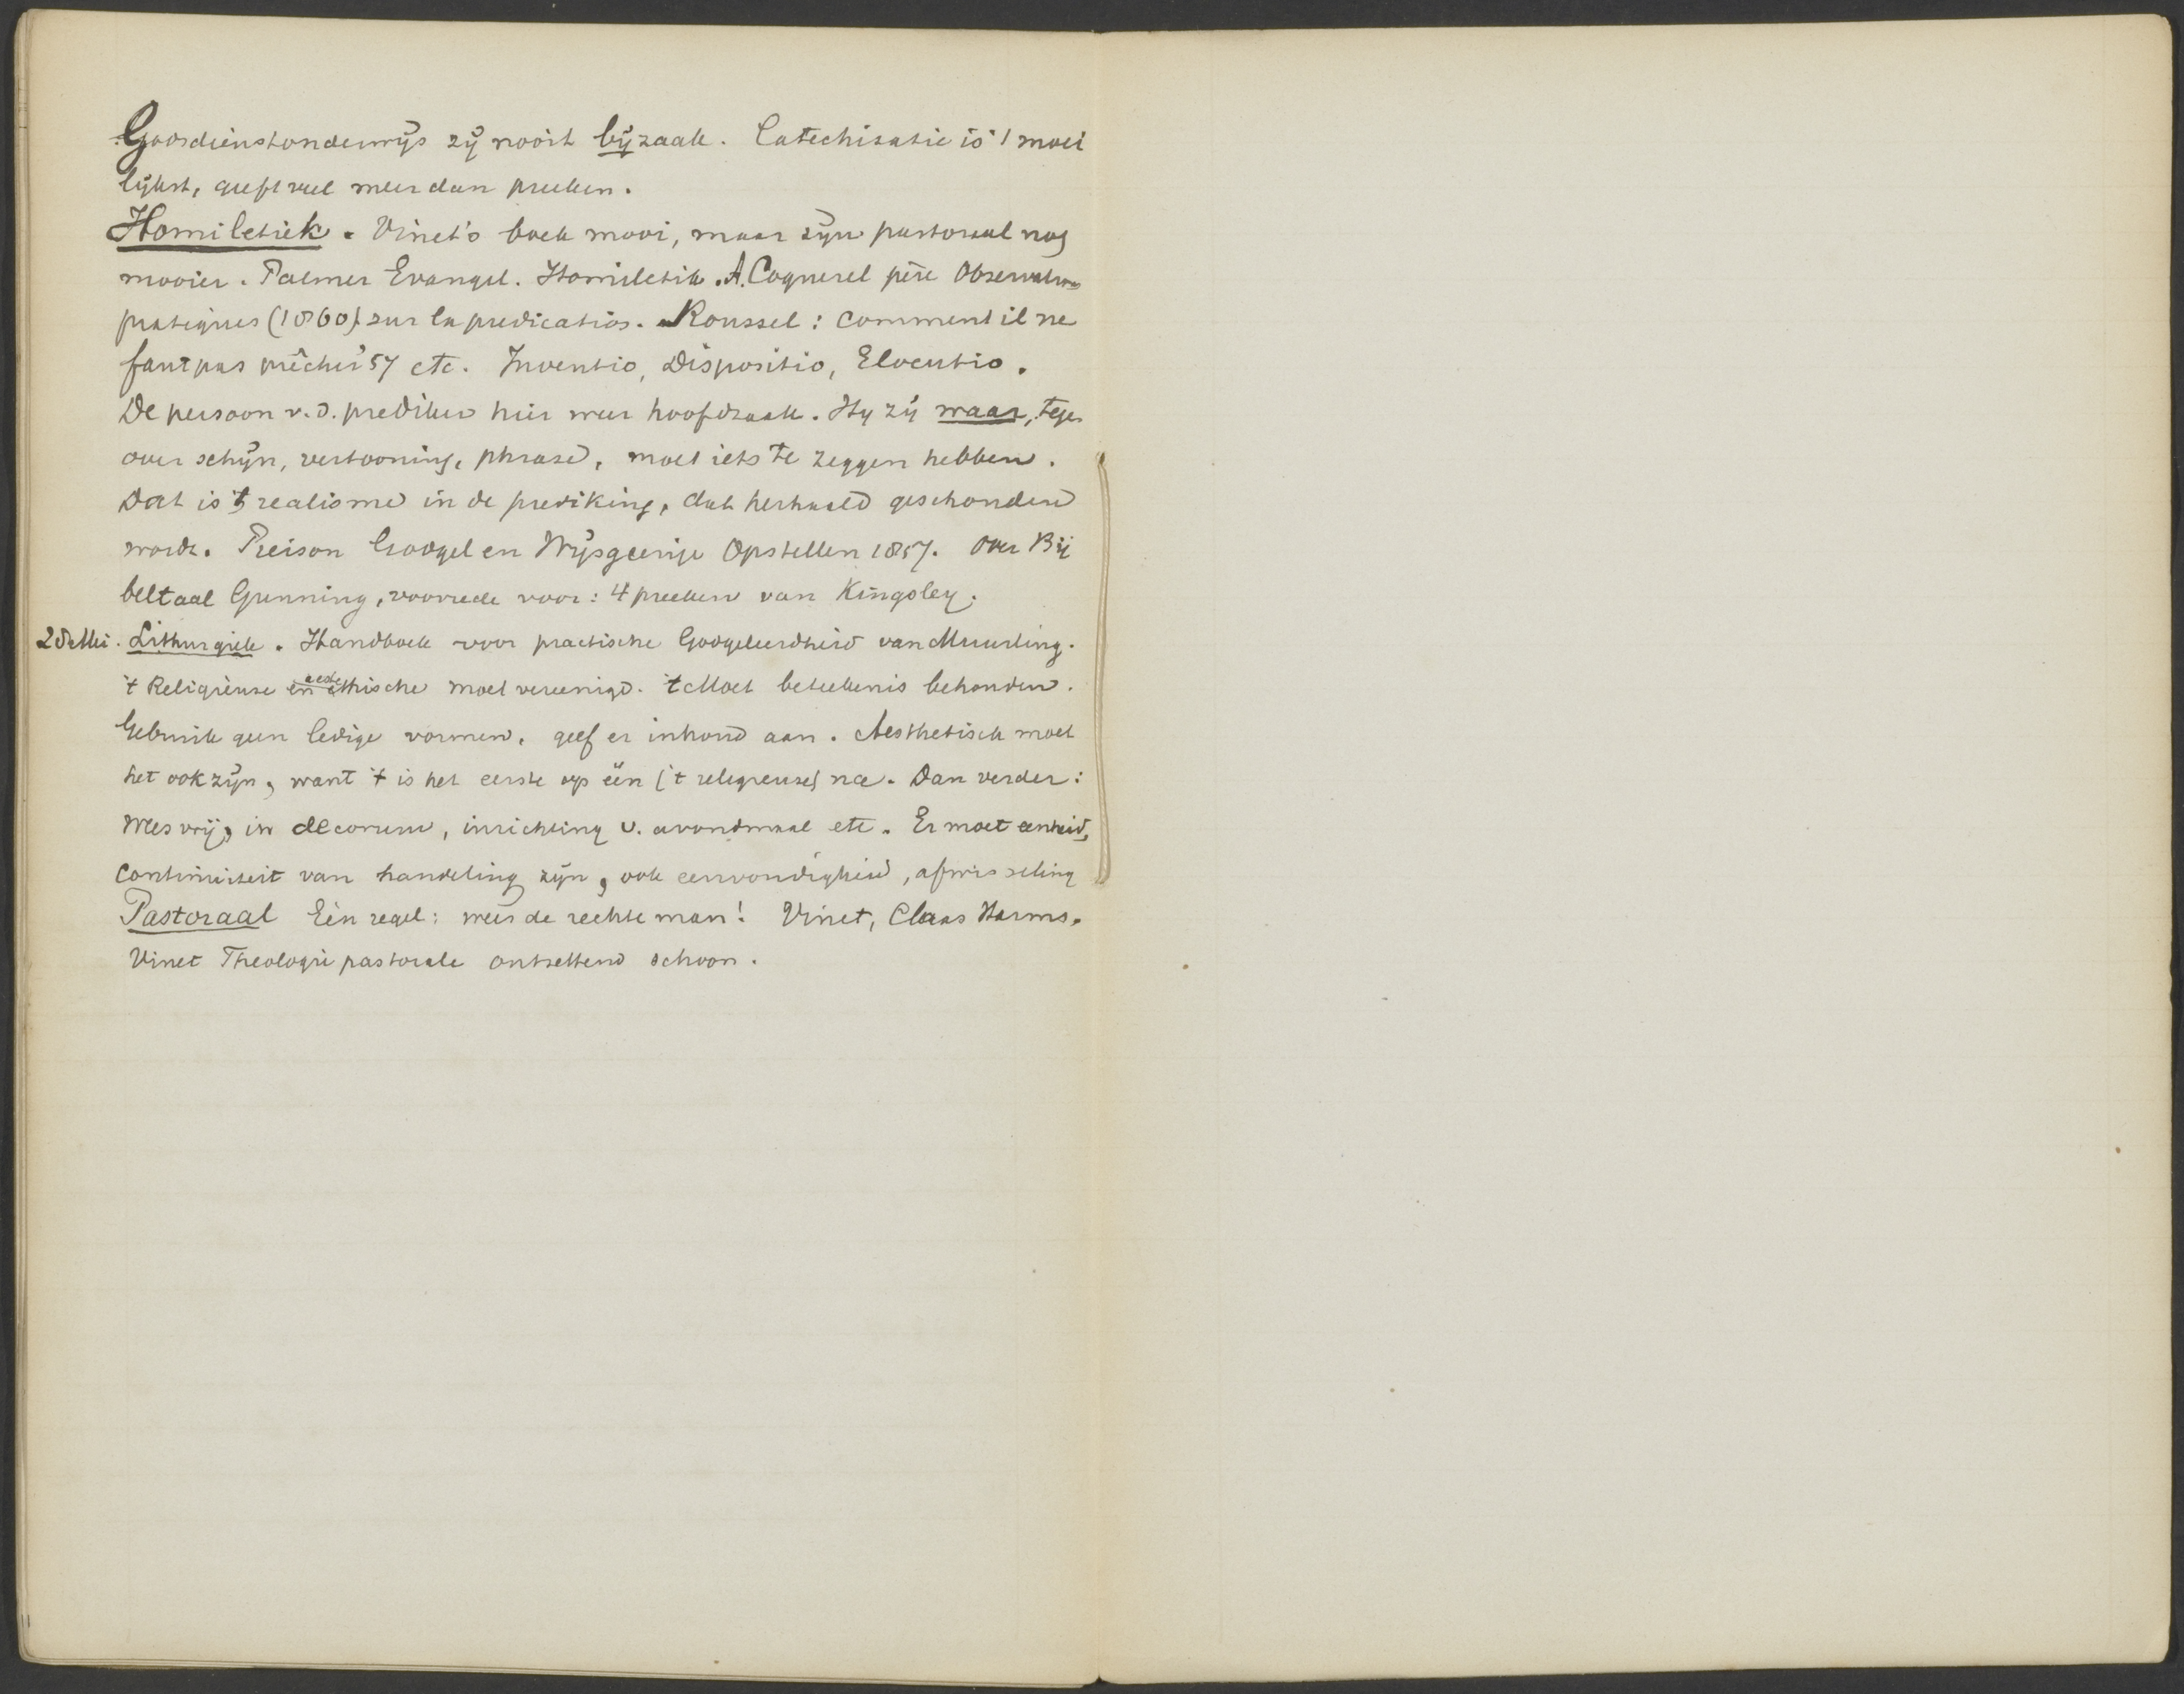 Godsdienstonderwijs zij nooit bijzaak. Catechisatie is 't moei
lijkst, geeft veel meer dan preeken.
Homiletiek. Vinet's boek mooi, maar zijn pastoraal nog
mooier. Palmer Evangel. Homiletik. A. Coquerel père Observations
pratiques (1860) sur la predication. Roussel: comment il ne
faut pas prêcher '57 etc. Inventio, Dispositio, Elocutio.
De persoon v.d. prediker hier weer hoofdzaak. Hij zij waar, tegen
over schijn, vertooning, phrase, moet iets te zeggen hebben.
Dat is 't realisme in de prediking, dat herhaald geschonden
wordt. Pierson Godgel en Wijsgeerige Opstellen 1857. Over Bij
beltaal Gunning, voorrede voor: 4 preeken van Kingsley.
28 Mei. Lithurgiek. Handboek voor practische Godgeleerdheid van Muurling.
't Religieuse en aesthische moet vereenigd. 't Moet beteekenis behouden.
Gebruik geen ledige vormen, geef er inhoud aan. Aesthetisch moet
het ook zijn, want 't is het eerste op één ('t religieuse) na. Dan verder:
Wees vrij, in decorum, inrichting v. avondmaal etc. Er moet eenheid,
continuiteit van handeling zijn, ook eenvoudigheid, afwisseling
Pastoraal Eén regel: wees de rechte man! Vinet, Claas Harms.
Vinet Theologie pastorale ontzettend schoon.